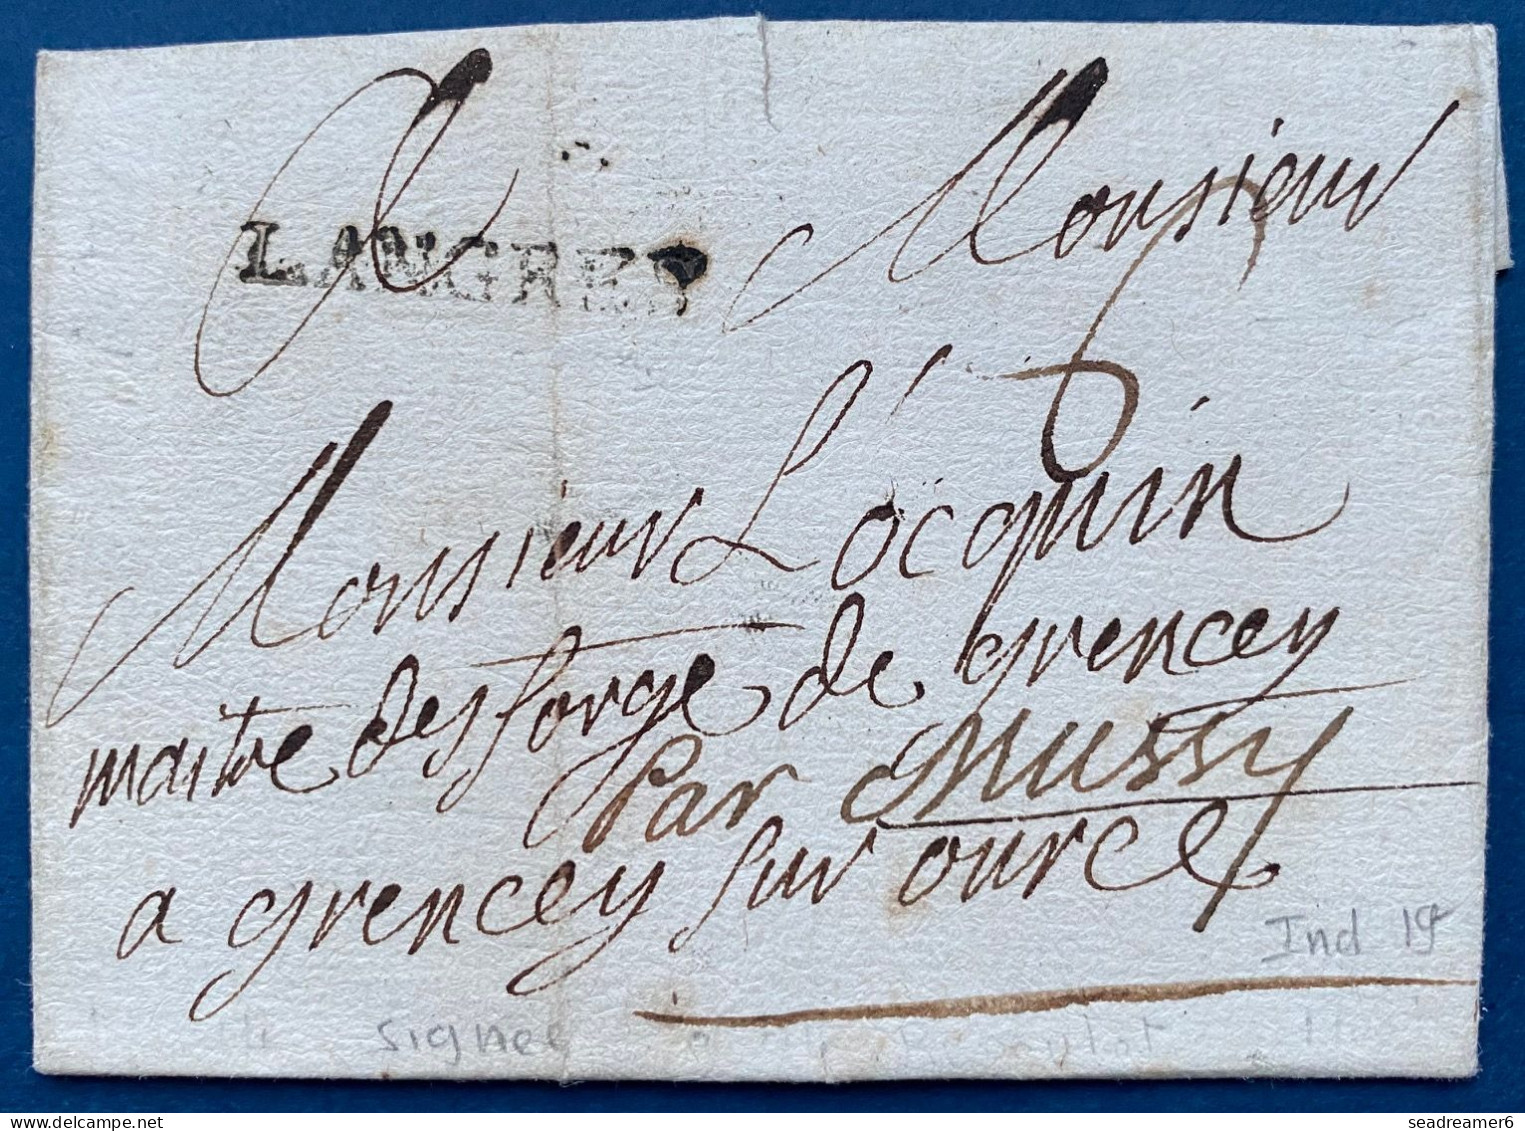 A Monsieur
LANGRES
5
Monsieur Locquin
maitre des forge de grencey
Par Mussy
a grencey sur ource
Ind 19
Signée
seadreamer6